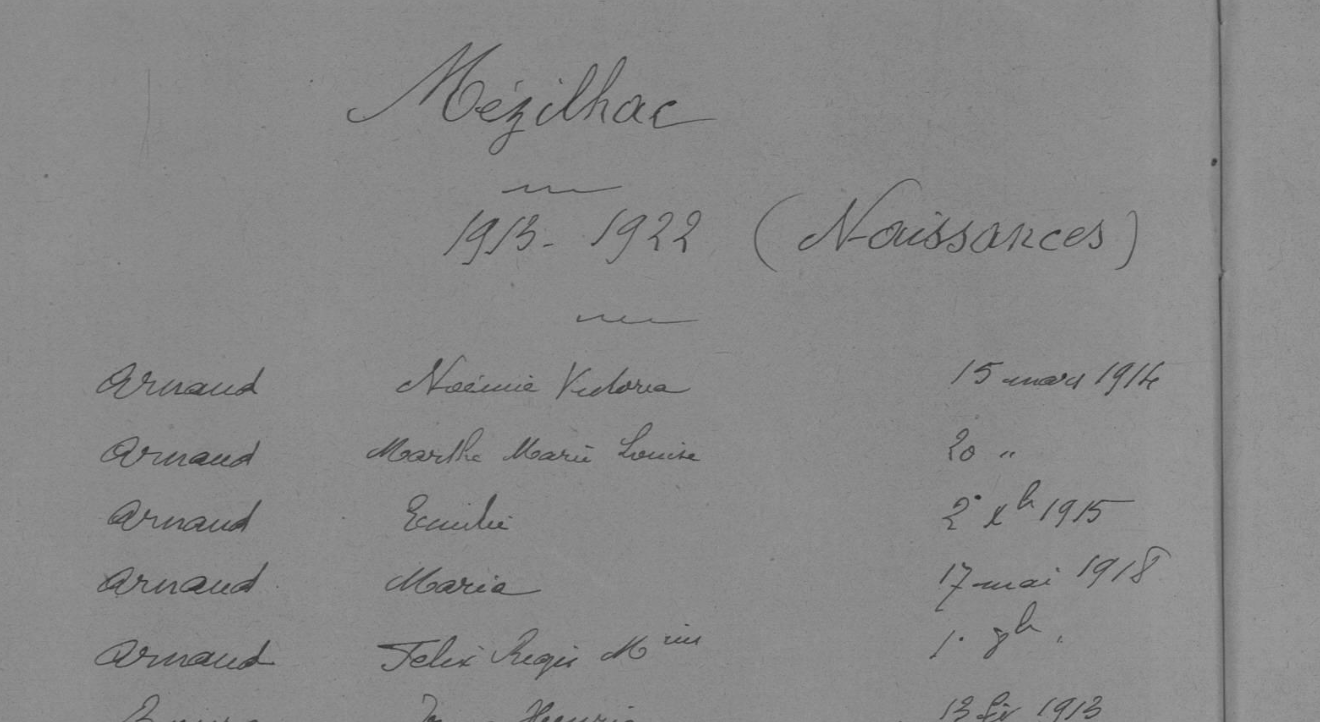 Mézilhac
1913 - 1922 (Naissances)
Arnaud Noémie Victoria 15 mars 1914
Arnaud Marthe Marie Louise 20 "
Arnaud Emilie 2 Xb 1915
Arnaud Maria 17 mai 1918
Arnaud Felix Regis Mius 1. 8b "
Henri 13 fév 1913